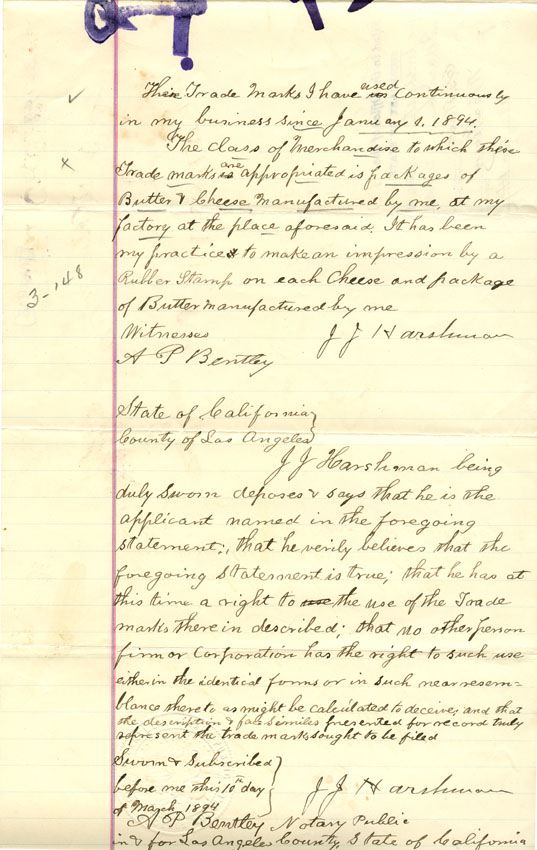 These Trade Marks I have used continuously
in my business since January 1. 1894.
The class of Merchandise to which these
Trade marks are appropriated is packages of
Butter & Cheese manufactured by me, at my
factory at the place aforesaid. It has been
my practice to make an impression by a
Rubber Stamp on each Cheese and package
of Butter manufactured by me
Witnesses J J Harshman
A P Bentley
3-148
State of California }
County of Los Angeles }
J J Harshman being
duly sworn deposes & says that he is the
applicant named in the foregoing
statement; that he verily believes that the
foregoing statement is true; that he has at
this time a right to use the use of the Trade
marks therein described; that no other person
firm or Corporation has the right to such use
either in the identical forms or in such near resem=
blance thereto as might be calculated to deceive; and that
the description & facsimiles presented for record truly
represent the trade marks sought to be filed
Sworn & Subscribed
before me this 10th day J J Harshman
of March 1894
A P Bentley Notary Public
in & for Los Angeles County, State of California